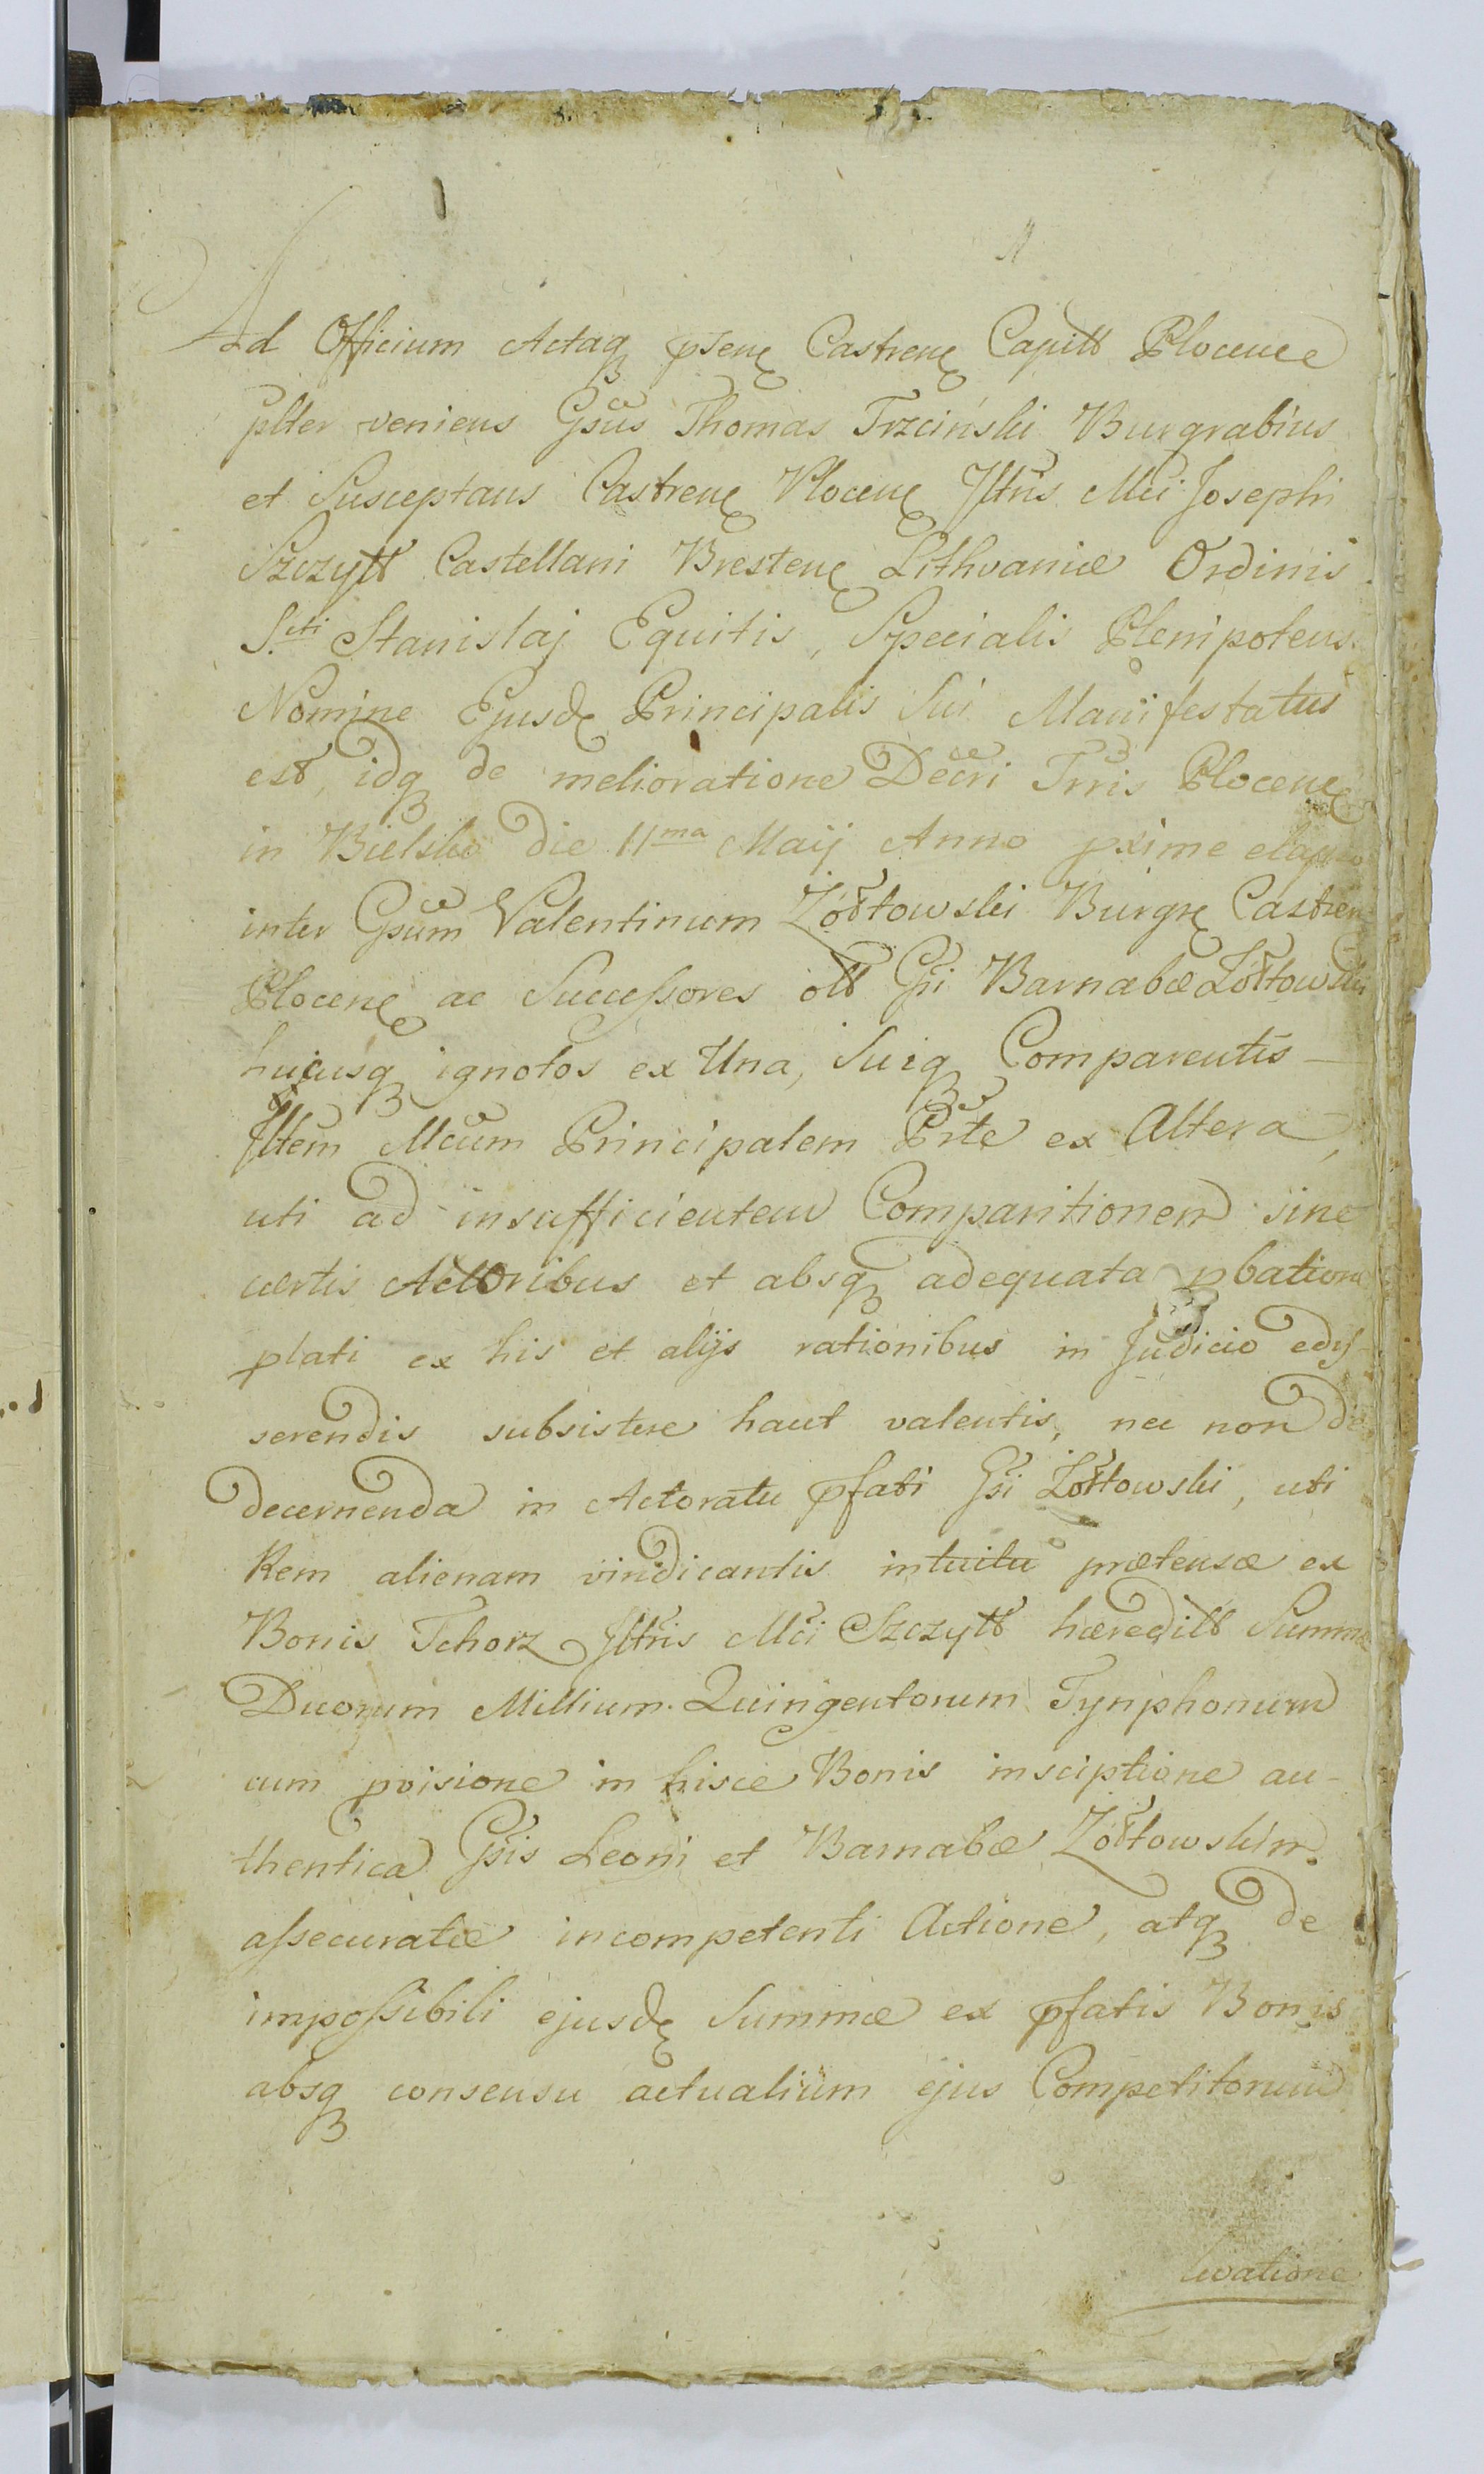 Ad Officium Actaq pseñ Castreñ Capitł Ploceñe
plter veniens Gsus Thomas Trzciński Burgrabius
et Susceptans Castreñ Ploceñ Jltris Mci Josephi
Szczytt Castellani Bresteñ Lithvaniæ Ordinis
S.cti Stanislaj Equitis, Specialis Plenipotens
Nomine Ejusd Principalis Sui Manifestatus
est, idq de melioratione Decri Trris Ploceñ
in Bielsko die 11ma Maij Anno pxime elapso
inter Gsum Valentinum Żółtowski Burgr Castreñ
Ploceñ ac Successores olł Gsi Barnabæ Żółtowski
hujusq ignotos ex Una, Suiq Comparentis –
Jltem Mcum Principalem Prte ex Altera,
uti ad insufficientem Comparitionem sine
certis Actoribus et absq adequata pbatione
plati ex his et alijs rationibus in Judicio edis-
serendis subsistere haut valentis, nec non de
decernenda in Actoratu pfati Gsi Żółtowski, uti
Rem alienam vindicantis intuitu prætensæ ex
Bonis Tchorz Jltris Mci Szczytt hæreditł Summæ
Duorum Millium Quingentorum Tynphonum
cum pvisione in hisce Bonis insciptione au-
thentica Gsis Leoni et Barnabæ Żółtowskim
assecuratæ incompetenti Actione, atq de
impossibili ejusd Summæ ex pfatis Bonis
absq consensu actualium ejus Competitorum
levatione